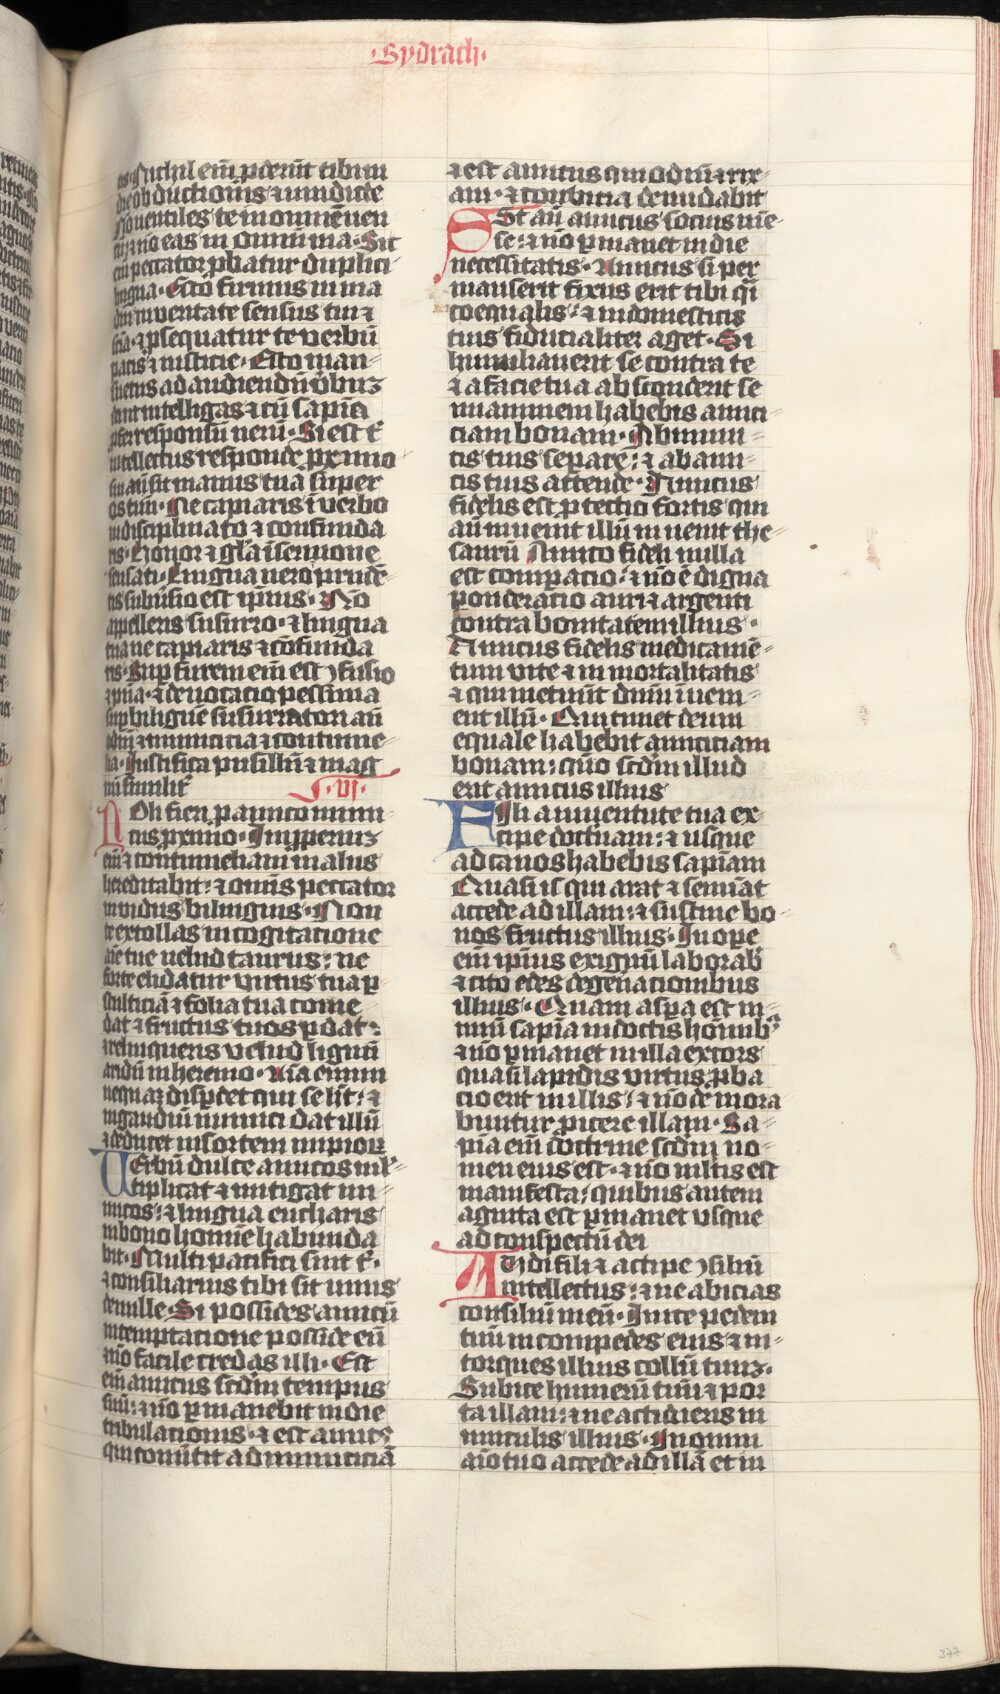 ·Sydrach·
us· Nichil em̄ ꝓderūt tibi in
die obductionis ⁊ uindicte
Non uentiles te in omnē uen
tū: ⁊ nō eas in omnī uia· Sic
em̄ peccator ꝓbatur duplici
lingua· Esto firmus in uia
dn̄i in ueritate sensus tui ⁊
scīa· ⁊ ꝓsequatur te verbū
pacis ⁊ iusticie· Esto man
suetus ad audiendū ūbuꝫ
dei ut intelligas ⁊ cū sapīa
ꝓfer responsū uerū· Si est t
intellectus responde ꝓximo
sin aū sit manus tua super
os tuū· Ne capiaris ī verbo
indisciplinato ⁊ confunda
ris· Honor ⁊ gl̄a ī sermone
sensati· Lingua uero prudē
tis subūsio est ipius· No
appelleris susurro· ⁊ lingua
tua ne capiaris ⁊ cōfunda
ris· Sup furem em̄ est ↄfusio
⁊ pn̄ia· ⁊ denotacio pessima
sup biliguē susurratori aū
odiū ⁊ inimicicia ⁊ contume
lia· Iustifica pusillū ⁊ mag
nū similit
·VI·
Noli fieri p amico inimi
cus ꝓximo· Impperiuꝫ
em̄ ⁊ contumeliam malus
hereditabit: ⁊ omīs peccator
inuidus bilinguis· Non
te extollas in cogitacione
aīe tue uelud taurus: ne
forte elidatur uirtus tua p
stulticiā ⁊ folia tua come
dat ⁊ fructus tuos ꝑdat:
⁊ relinqueris velud lignū
aridū in heremo· Aīa enim
nequaꝫ disꝑdet qui se hīt: ⁊
in gaudiū inimici dat illū
⁊ deducet in sortem impiorū
Uerbū dulce amicos ml
tiplicat ⁊ mitigat ini
micos: ⁊ lingua eucharis
in bono homīe habunda
bit· Multi pacifici sint t·
⁊ consiliarius tibi sit unus
de mille· Si possides amicū
in temptacione posside eū
⁊ nō facile credas illi· Est
em̄ amicus scdm̄ tempus
suū: ⁊ nō ꝑmanebit in die
tribulacionis· ⁊ est amic
qui conūtit᷑ ad inimiciciā
⁊ est amicus qui odiū ⁊ rix
am· ⁊ conuicia denudabit
Est aū amicus socius mē
se: ⁊ nō ꝑmanet in die
necessitatis· Amicus si per
manserit fixus erit tibi q̄i
coequalis: ⁊ in domesticis
tuis fiducialiter aget· Si
humiliauerit se contra te
⁊ a facie tua absconderit se
unanimem habebis amici
ciam bonam· Ab inimi
cis tuis separe: ⁊ ab ami
cis tuis attende· Amicus
fidelis est ꝓtectio fortis qui
aū inuenit illū inuenit the
saurū Amico fideli nulla
est comparacio: ⁊ nō ē digna
ponderacio auri ⁊ argenti
contra bonitatem illius·
Amicus fidelis medicamē
tum vite ⁊ in mortalitatis
⁊ qui metuūt dnm̄ īueni
ent illū· Qui timet deum
equale habebit amiciciam
bonam: qm̄o scdm̄ illud
erit amicus illius
Fili a iuuentute tua ex
cipe doctrinam: ⁊ usque
ad canos habebis sapīam
Quasi is qui arat ⁊ semiāt
accede ad illam: ⁊ sustine bo
nos fructus illius· In ope
em̄ ipius exiguū laborab
⁊ cito edes de geñacionibus
illius· Quam aspa est ni
miū sapīa indoctis homīb
⁊ nō ꝑmanet in illa excors
quasi lapidis virtus ꝓba
cio erit in illis: ⁊ nō demora
buntur ꝓicere illam· Sa
pīa em̄ doctrine scdm̄ no
men eius est· ⁊ nō mltis est
manifesta: quibus autem
agnita est ꝑmanet vsque
ad conspectū dei
Audi fili ⁊ accipe ↄsiliū
intellectus: ⁊ ne abicias
consiliū meū· Inice pedem
tuū in compedes eius ⁊ in
torques illius collū tuuꝫ·
Subice humerū tuū ⁊ por
ta illam: ⁊ ne accidieris in
uinculis illius· In omni
aīo tuo accede ad illā et in
377